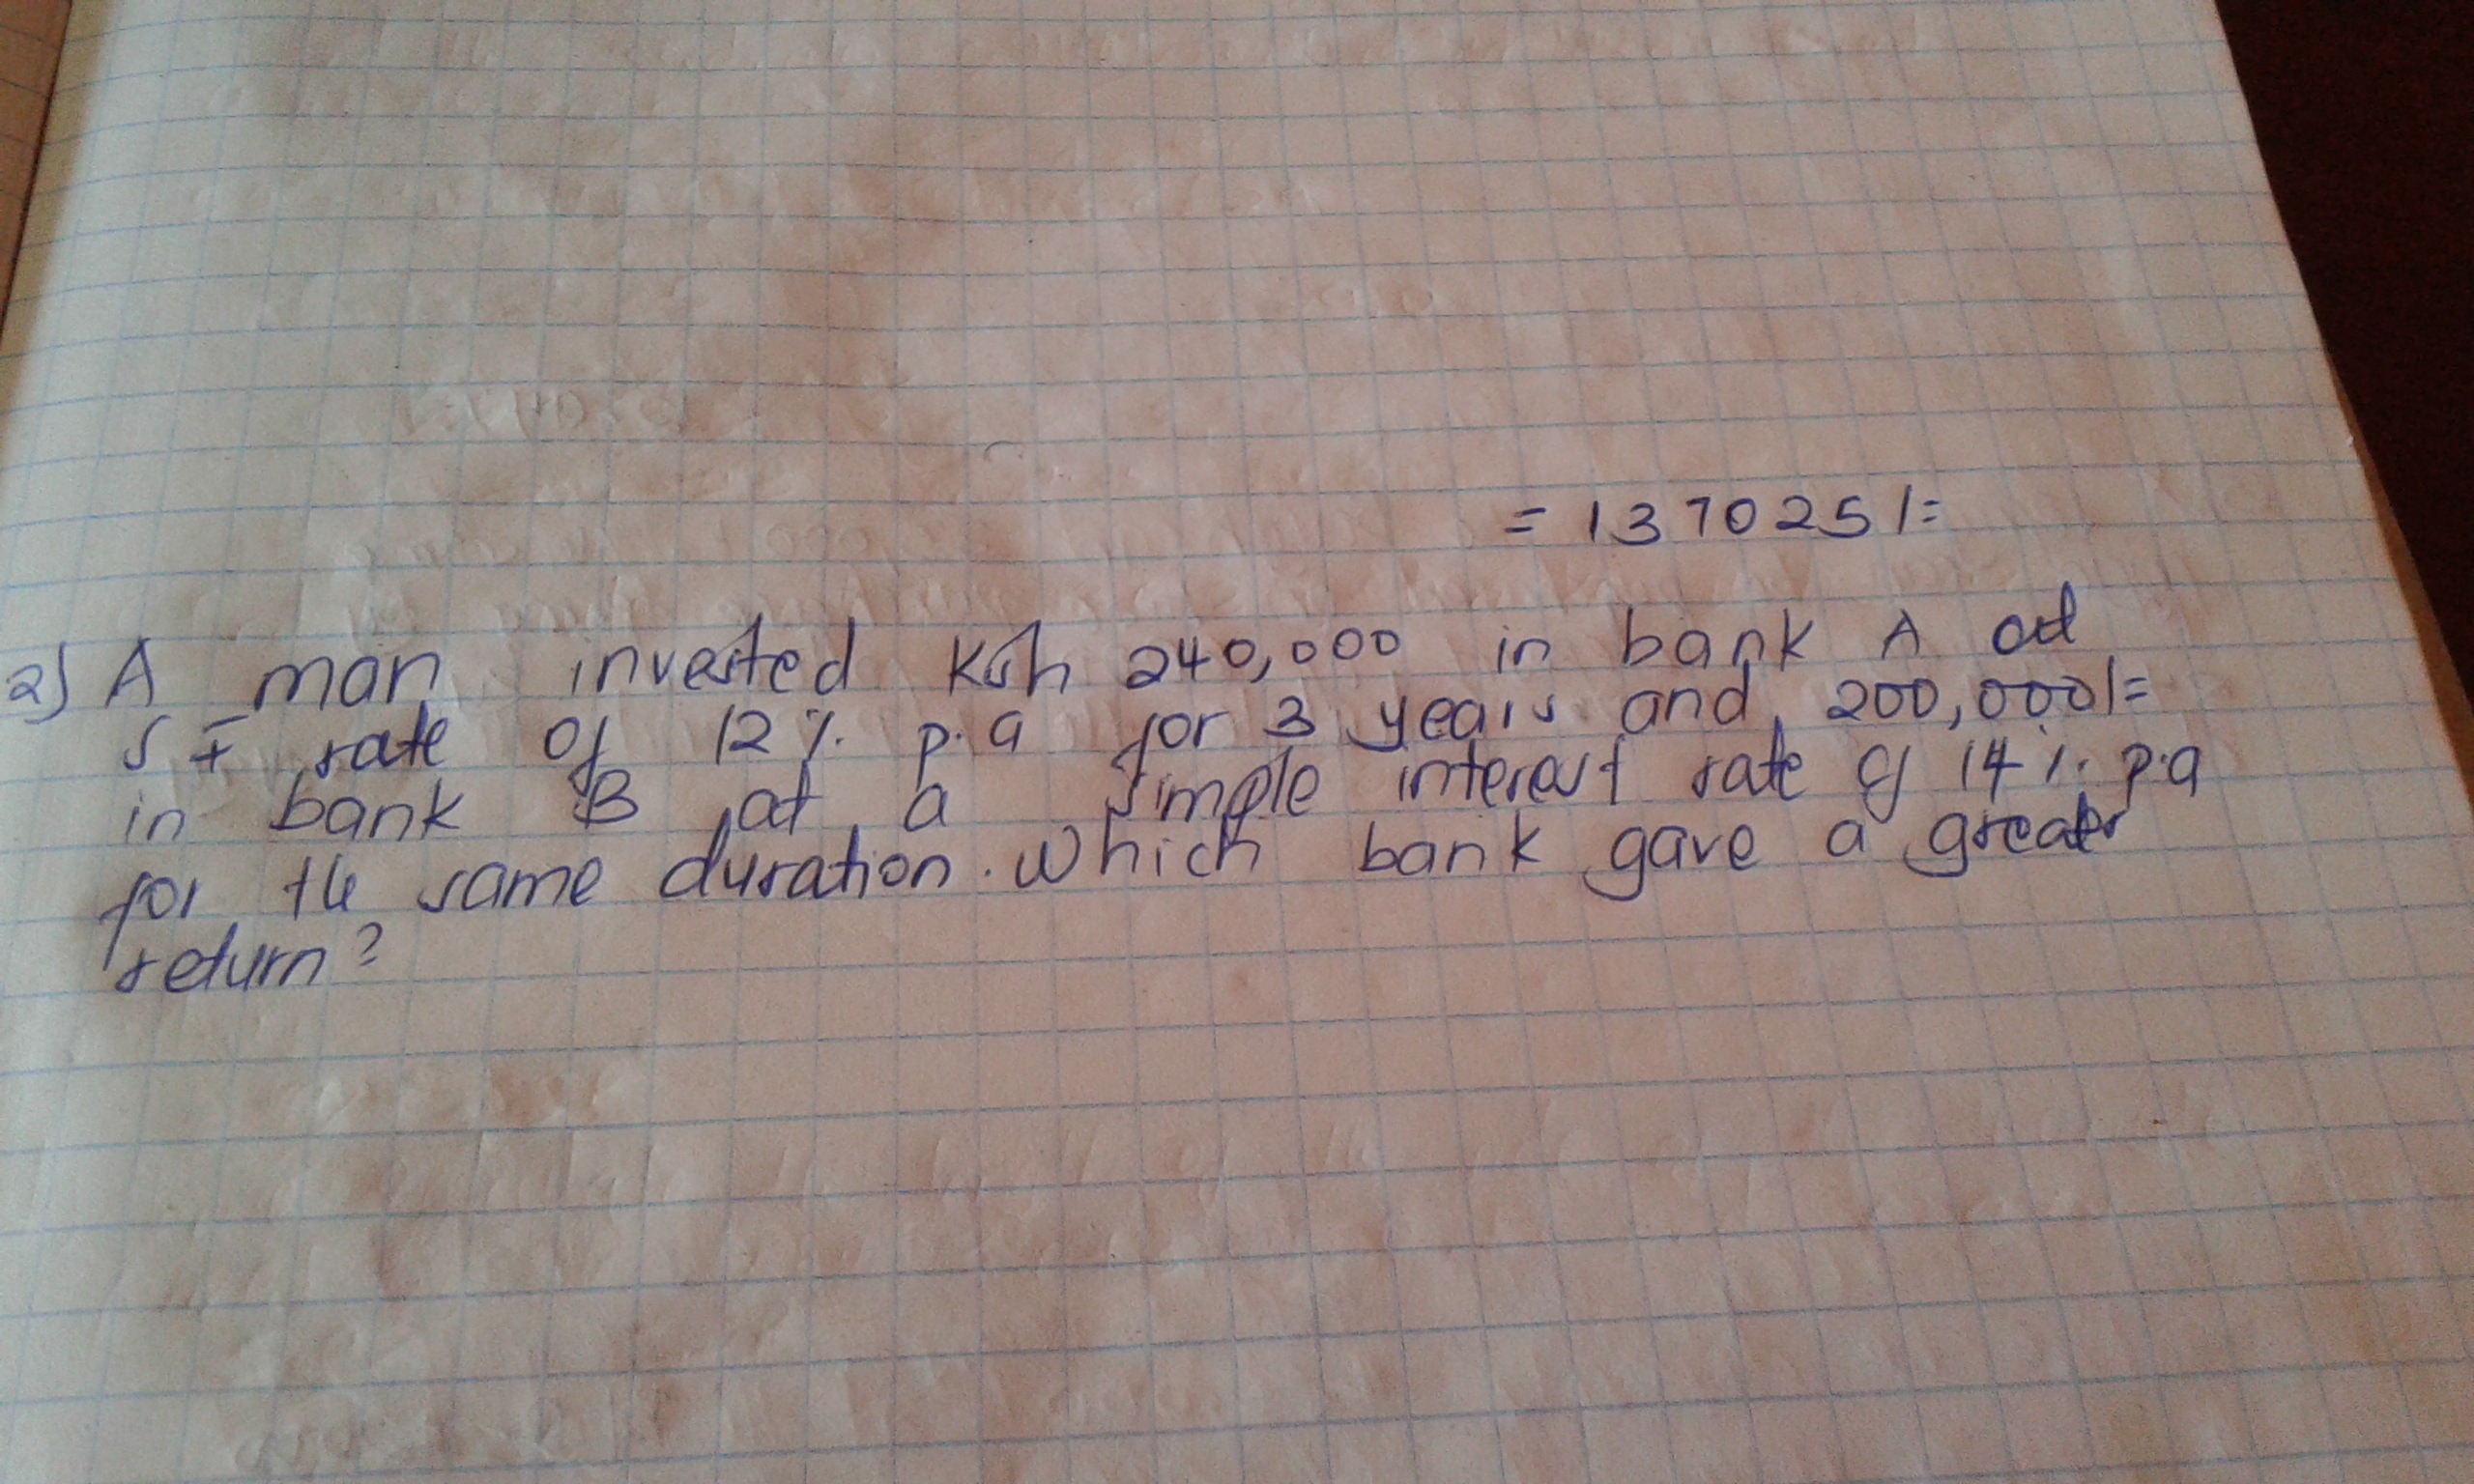 = 137025/=
2) A man invested Ksh 240,000 in bank A at
S I rate of 12% p.a for 3 years and 200,000/=
in bank B at a simple interest rate of 14%. p.a
for the same duration. Which bank gave a greater
return?